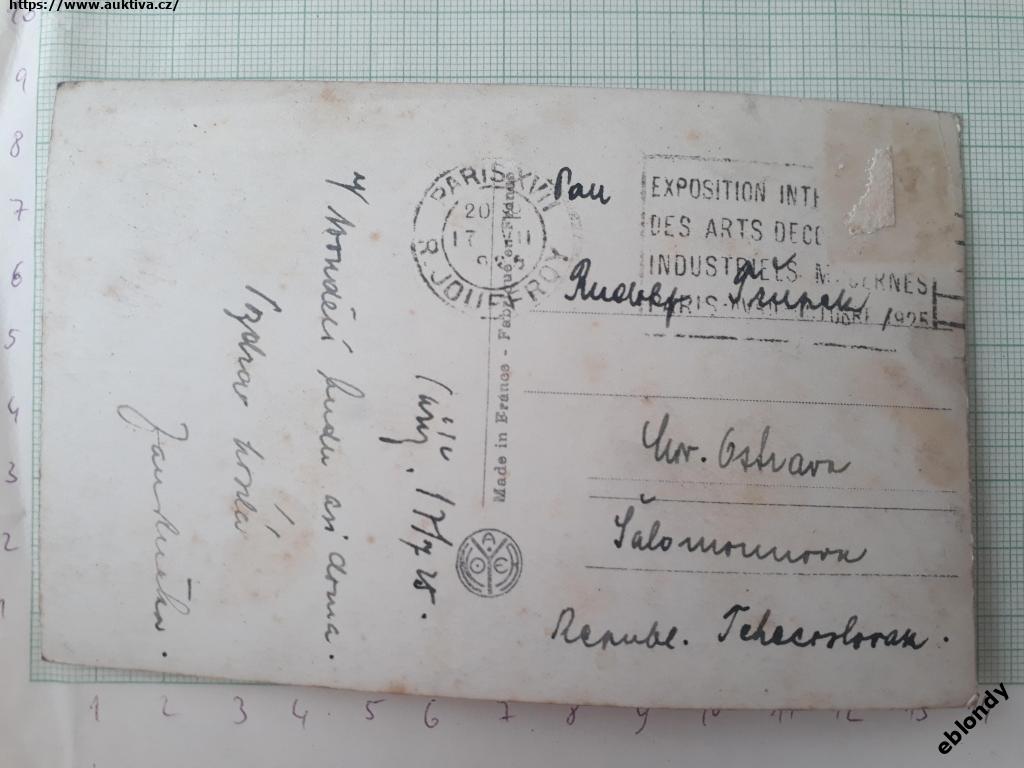 https://www.auktiva.cz/
10
9
8
7
6
5
4
3
2
1
PARIS XVII
20
17
R. JOUFFROY
EXPOSITION INTE
DES ARTS DECO
INDUSTRIELS MODERNES
PARIS 1925
Pan
Rudolf
Mor. Ostrava
Šalomounova
Republ. Tchecoslovak.
Made in France - Fabriqué en France
17/7 25.
V pondělí budu asi doma.
Pozdrav
1 2 3 4 5 6 7 8 9 10 11 12 13
eblondy